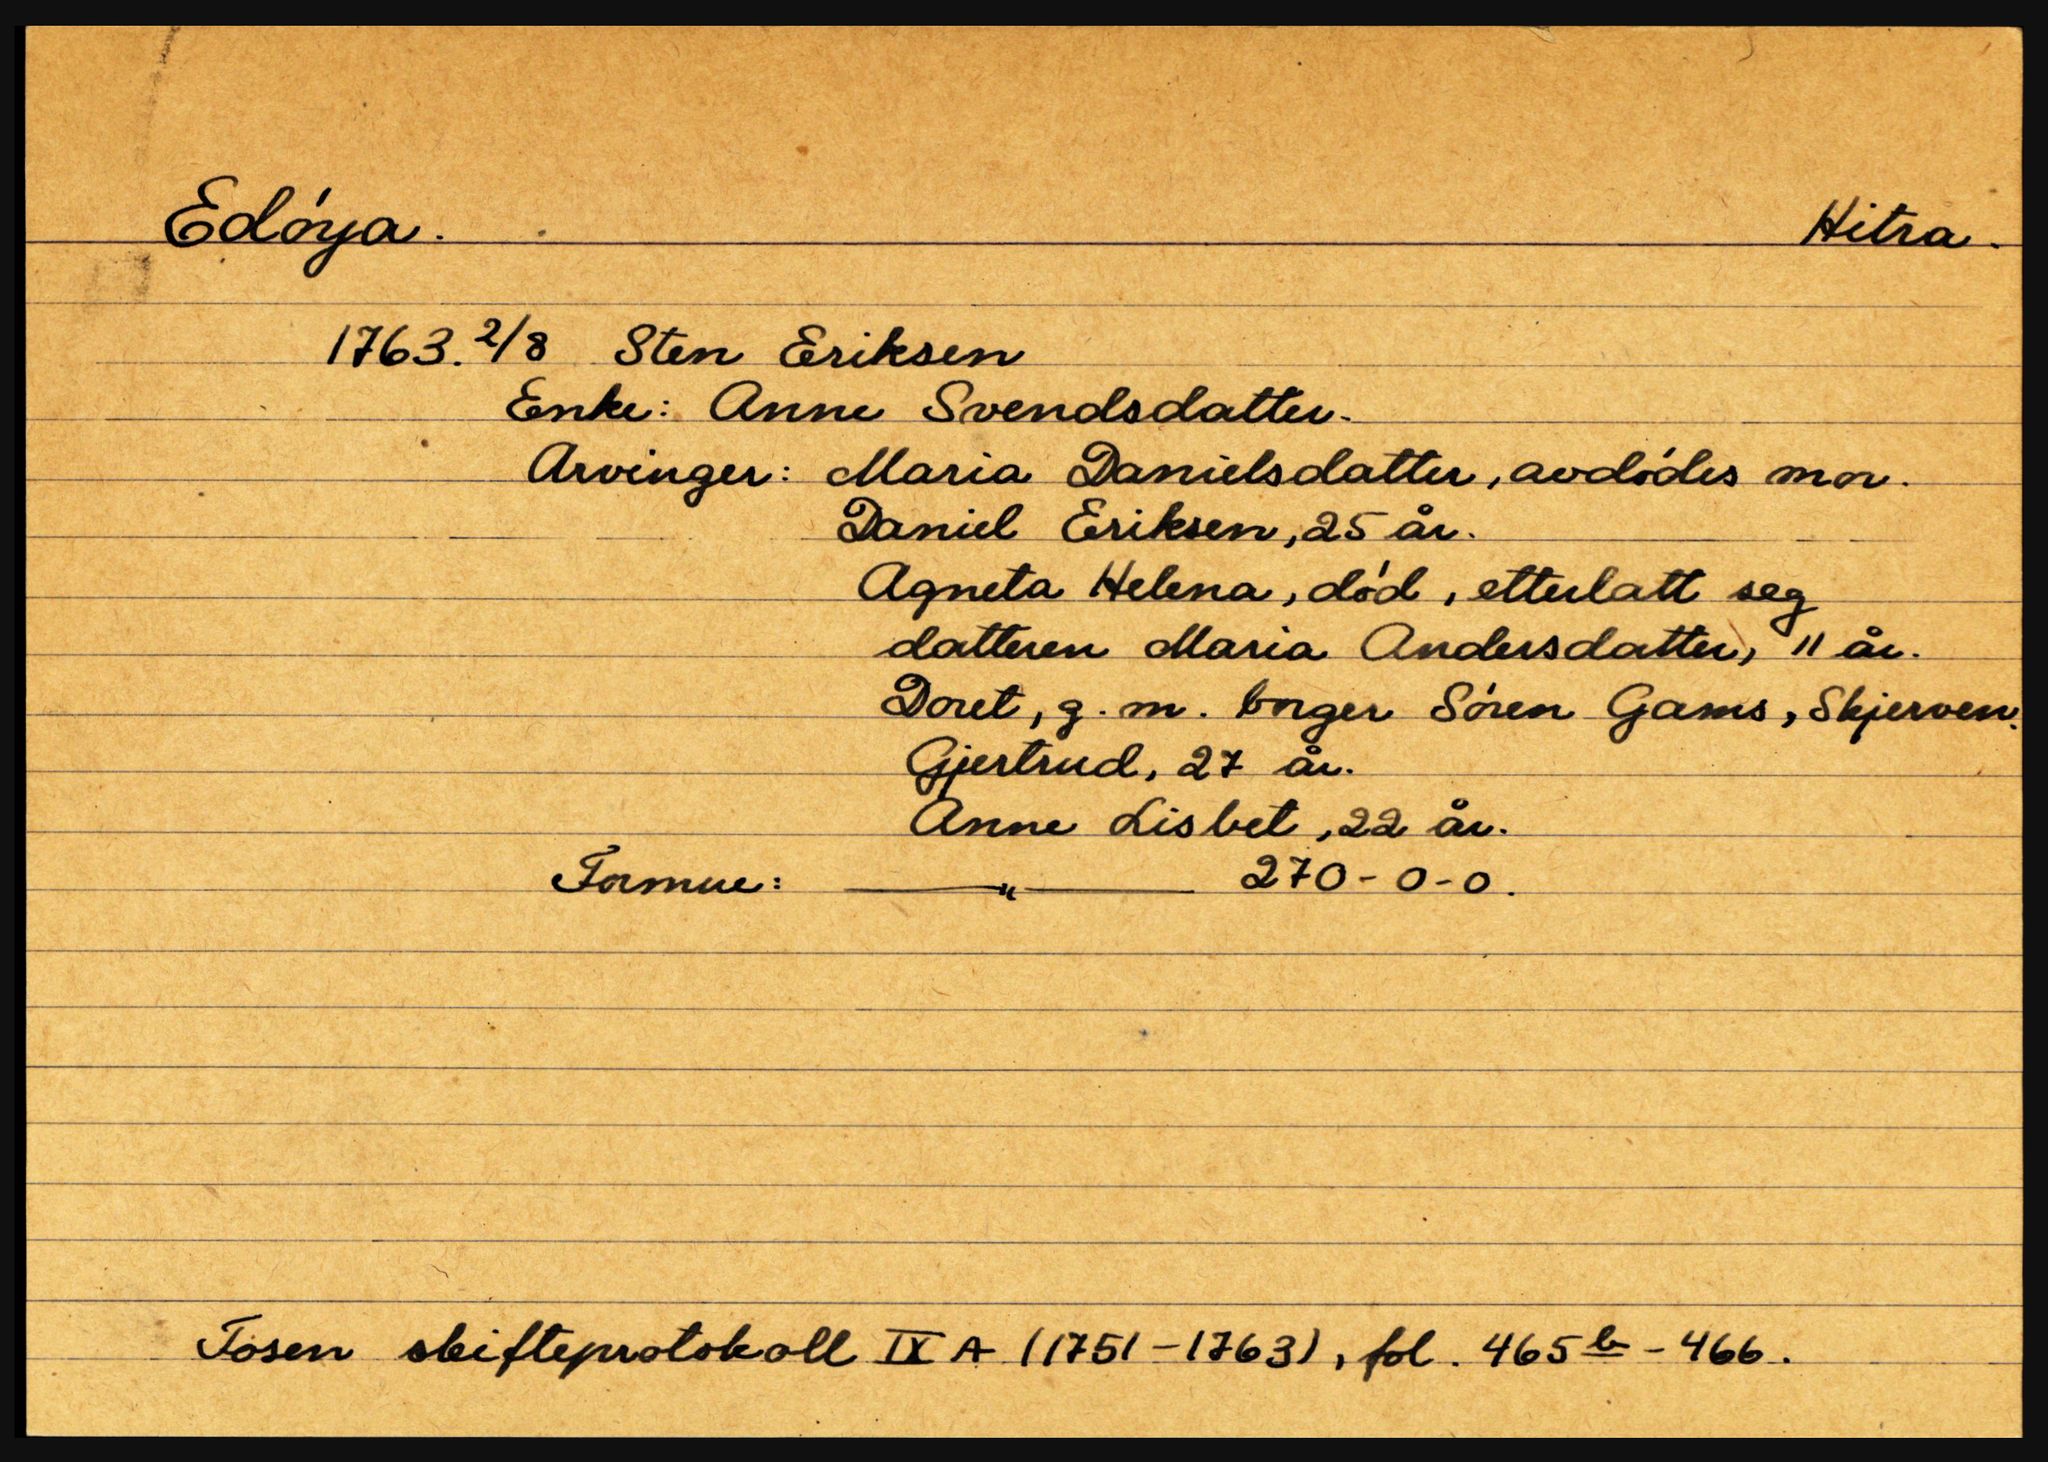 Edøya. Hitra.
1763. 2/8 Sten Eriksen
Enke: Anne Svendsdatter.
Arvinger: Maria Danielsdatter, avdødes mor.
Daniel Eriksen, 25 år.
Agneta Helena, død, etterlatt seg
datteren Maria Andersdatter, 11 år.
Doret, g. m. borger Søren Gams, Skjerven.
Gjertrud, 27 år.
Anne Lisbet, 22 år.
Formue: —— " —— 270-0-0.
Fosen skifteprotokoll IX A (1751-1763), fol. 465 b - 466.